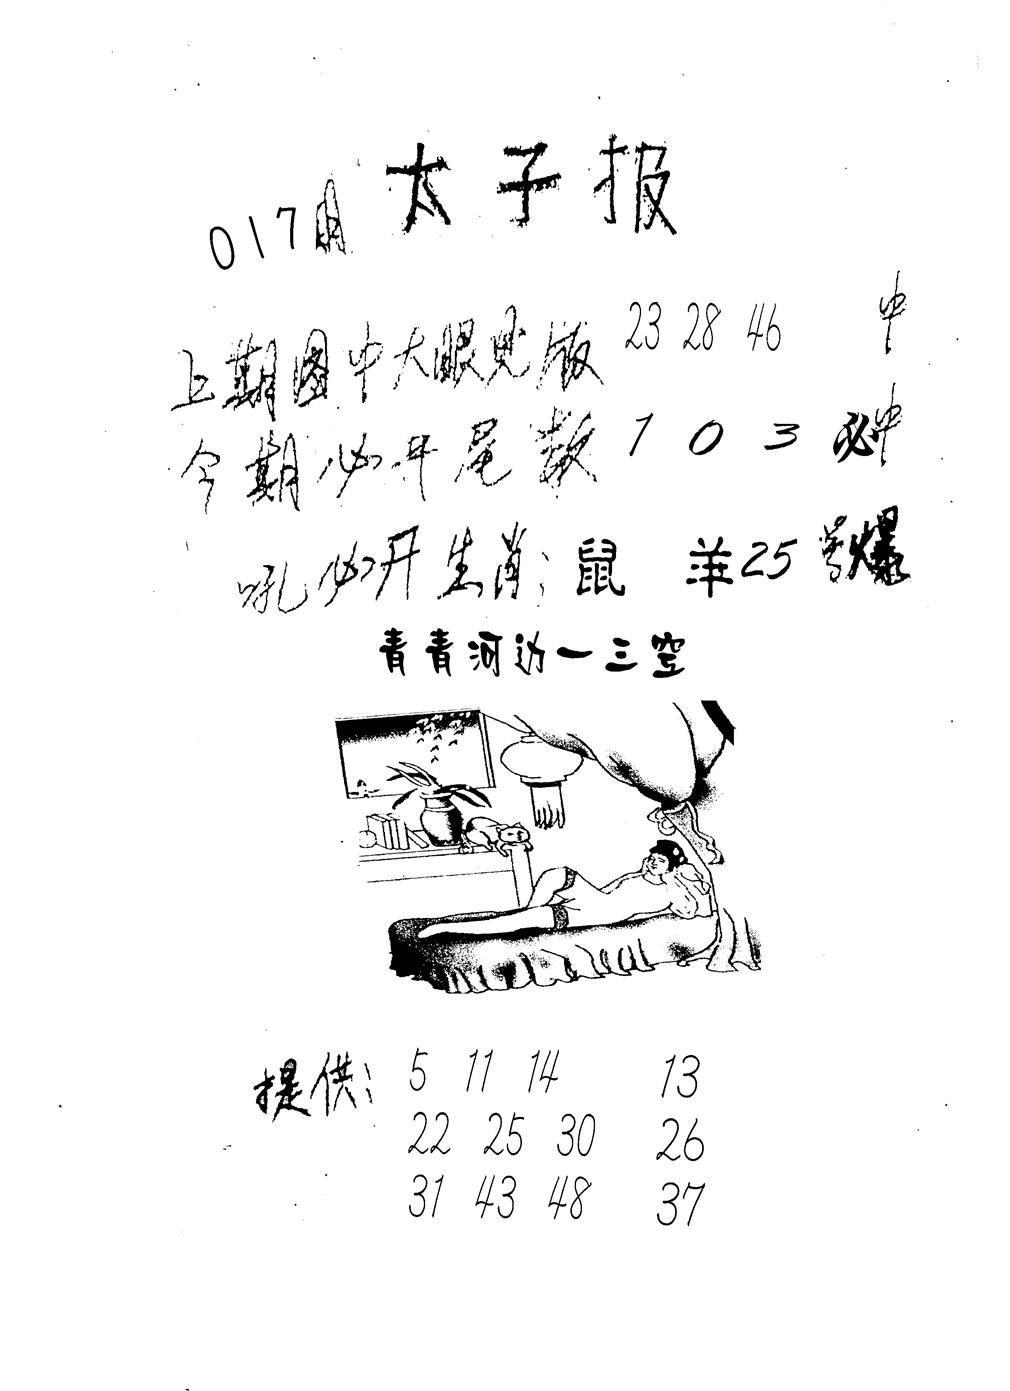 太子报
017期
上期图中大眼见版 23 28 46 中
今期必开尾数 1 0 3 必中
吼必开生肖：鼠 羊 25 号爆
青青河边一三空
提供： 5 11 14 13
22 25 30 26
31 43 48 37